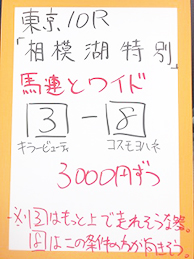 東京10R
「相模湖特別」
馬連とワイド
3-8
キラービューティ コスモヨハネ
3000円ずつ
※3はもっと上で走れそうな器。
8はこの条件のわが向きそう。